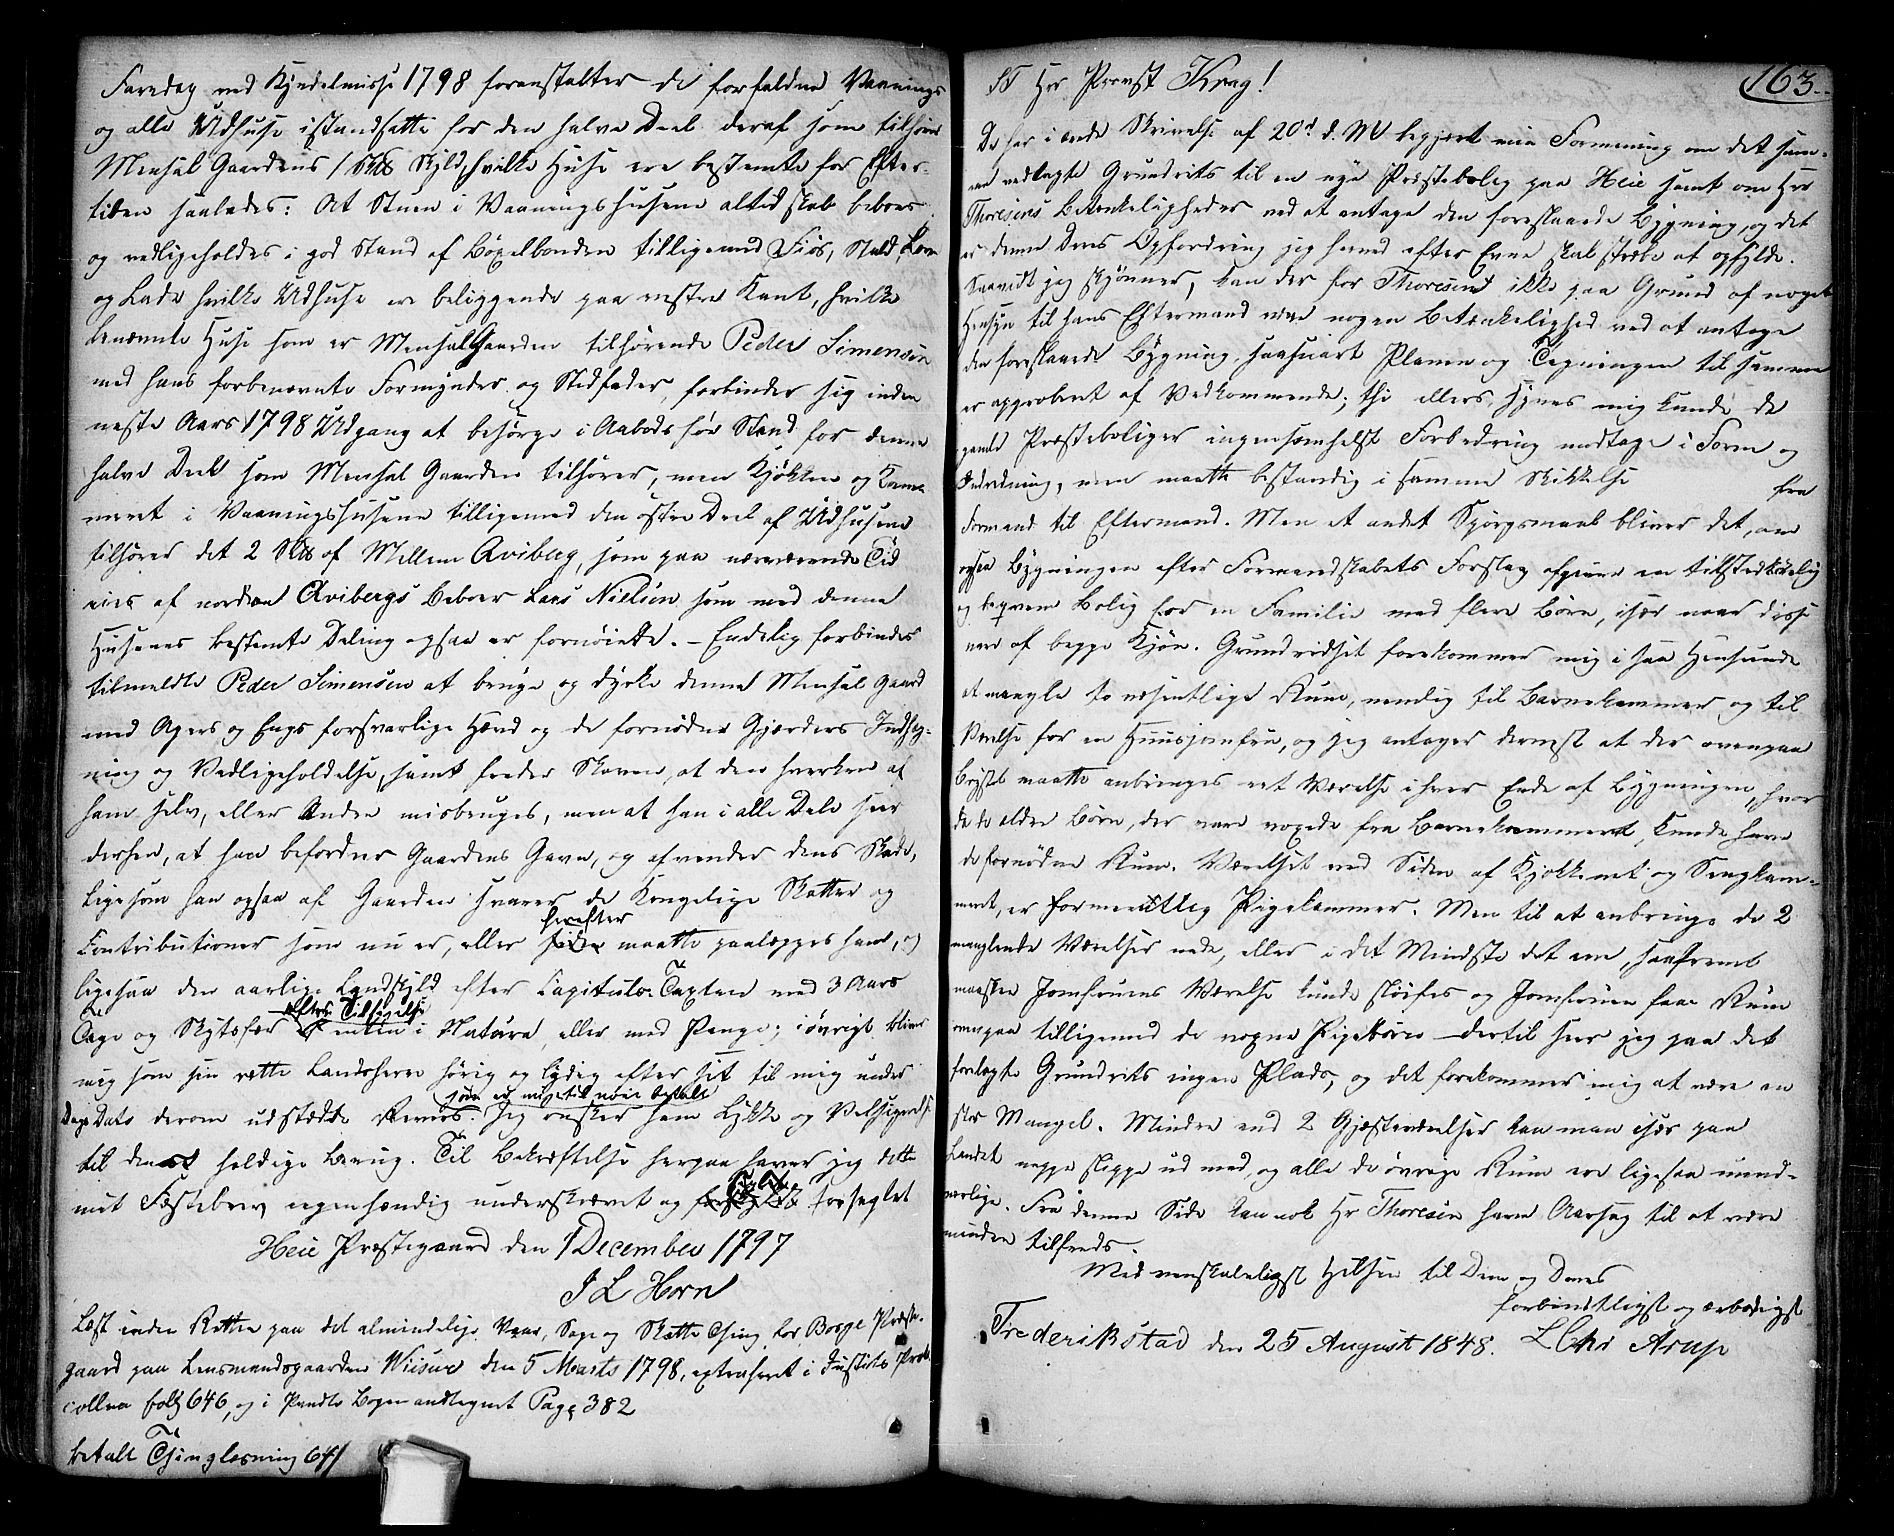 Faredag ved Kyndelmisse 1798 foranstalter de forfaldne Vaanings
og alle Udhuse istandsatte for den halve Deel deraf som tilhører
Mensal Gaardens 1 Sk℔ Skyld, hvilke Huse ere bestemte for Efter-
tiden saaledes: At Stuen i Vaaningshusene altid skal beboes
og vedligeholdes i god Stand af Böxelbonden tilligemed Fiös, Stald, Lave
og Lade hvilke Udhuse ere beliggende paa vestre Kant, hvilke
benævnte Huse som er Mensal Gaarden tilhørende Peder Simensen
med hans forbenævnte Formynder og Stedfader, forbinder sig inden
neste Aars 1798 Udgang at besörge i Aabods før Stand for denne
halve Deel som Mensal Gaarden tilhører, men Kjøkken og Kam-
meret i Vaaningshusene tilligemed den østre Deel af Udhusene
tilhører det 2 Sk℔ af Mellem Qviberg, som paa nærværende Tid
eies af nordre Qvibergs Beboer Lars Nielsen som med denne
Husenes bestemte Deling ogsaa er fornöiet. – Endelig forbindes
tilmeldte Peder Simensen at bruge og dyrke denne Mensal Gaard
med Agers og Engs forsvarlige Hævd og de fornödne Gjærders Indheg-
ning og Vedligeholdelse, samt freder Skoven, at den hverken af
ham selv, eller Andre misbruges, men at han i alle Dele seer
derhen, at han befordrer Gaardens Gavn, og afvender dens Skade,
ligesom han ogsaa af Gaarden svarer de Kongelige Skatter og
herefter
Contributioner som nu er, eller siden maatte paalægges ham, og
ligesaa den aarlige Landskyld efter Capitels Taxten med 3 Aars
efter Tilsigelse
Tage og Skytsfær enten i Natura, eller med Penge; iøvrigt bliver
mig som sin rette Landsherre hørig og lydig efter sit til mig under
som er mig til nöie betalt
Dags Dato derom udstædte Revers. Jeg ønsker ham Lykke og Velsignelse
til dens heldige Brug. Til Bekræftelse herpaa haver jeg dette
mit Fæstebrev egenhændig underskrevet og forseglet
Heie Præstegaard den 1 December 1797
J L Horn
Læst inden Retten paa det almindelige Vaar, Sage og Skatte Thing for Borge Præste-
gaard paa Lensmandsgaarden Wiisur den 5 Marts 1798, extraheret i Justits Proto-
collen fol 646, og i Pandte Bogen antegnet Pag 382
betalt Thinglæsning 64/
163.
ST Hr Provst Krag!
De har i ærede Skrivelse af 20d d. M. begjert min Formening om det sam-
me vedlagte Grundrits til en nye Præstebolig paa Heie samt om Hr
Thoresens Betænkeligheder ved at antage den foreslaaede Bygning, og det
er denne Deres Opfordring jeg herved efter Evne skal stræbe at opfylde.
Saavidt jeg skjønner, kan der for Thoresen ikke paa Grund af noget
Hensyn til hans Eftermand være nogen Betænkelighed ved at antage
den foreslaaede Bygning, saasnart Planen og Tegningen til samme
er approberet af Vedkommende; thi ellers synes mig kunde de
gamle Præsteboliger ingensomhelst Forbedring modtage i Form og
Indretning, men maatte bestandig i samme Skikkelse fra
Formand til Eftermand. Men et andet Spörgsmaal bliver det, om
ogsaa Bygningen efter Formandskabets Forslag afgiver en tilstrækkelig
og beqvem Bolig for en Familie med flere Børn, især naar disse
ere af begge Kjön. Grundridset forekommer mig i saa Henseende
at mangle to væsentlige Rum, nemlig til Barnekammer og til
Værelse for en Huusjomfru, og jeg antager dernæst at der ovenpaa
Loftet maatte anbringes eet Værelse i hver Ende af Bygningen, hvor
da de ældre Børn, der vare voxede fra Barnekammeret, kunde have
de fornødne Rum. Værelset ved Siden af Kjøkkenet og Sengkam-
meret, er formeentlig Pigekammer. Men til at anbringe de 2
manglende Værelser nede, eller i det Mindste det ene, saafremt
maaskee Jomfruens Værelse kunde sløifes og Jomfruen faae Rum
ovenpaa tilligemed de voxne Pigebörn – dertil seer jeg paa det
forelagte Grundrits ingen Plads, og det forekommer mig at være en
stor Mangel. Mindre end 2 Gjæsteværelser kan man især paa
Landet neppe slippe ud med, og alle de øvrige Rum ere ligesaa uund-
værlige. Fra denne Side kan nok Hr Thoresen have Aarsag til at være
mindre tilfreds.
Med venskabeligst Hilsen til Dem og Deres
forbindtligst og ærbødigst
Frederikstad den 25 August 1848. L Chr Arup